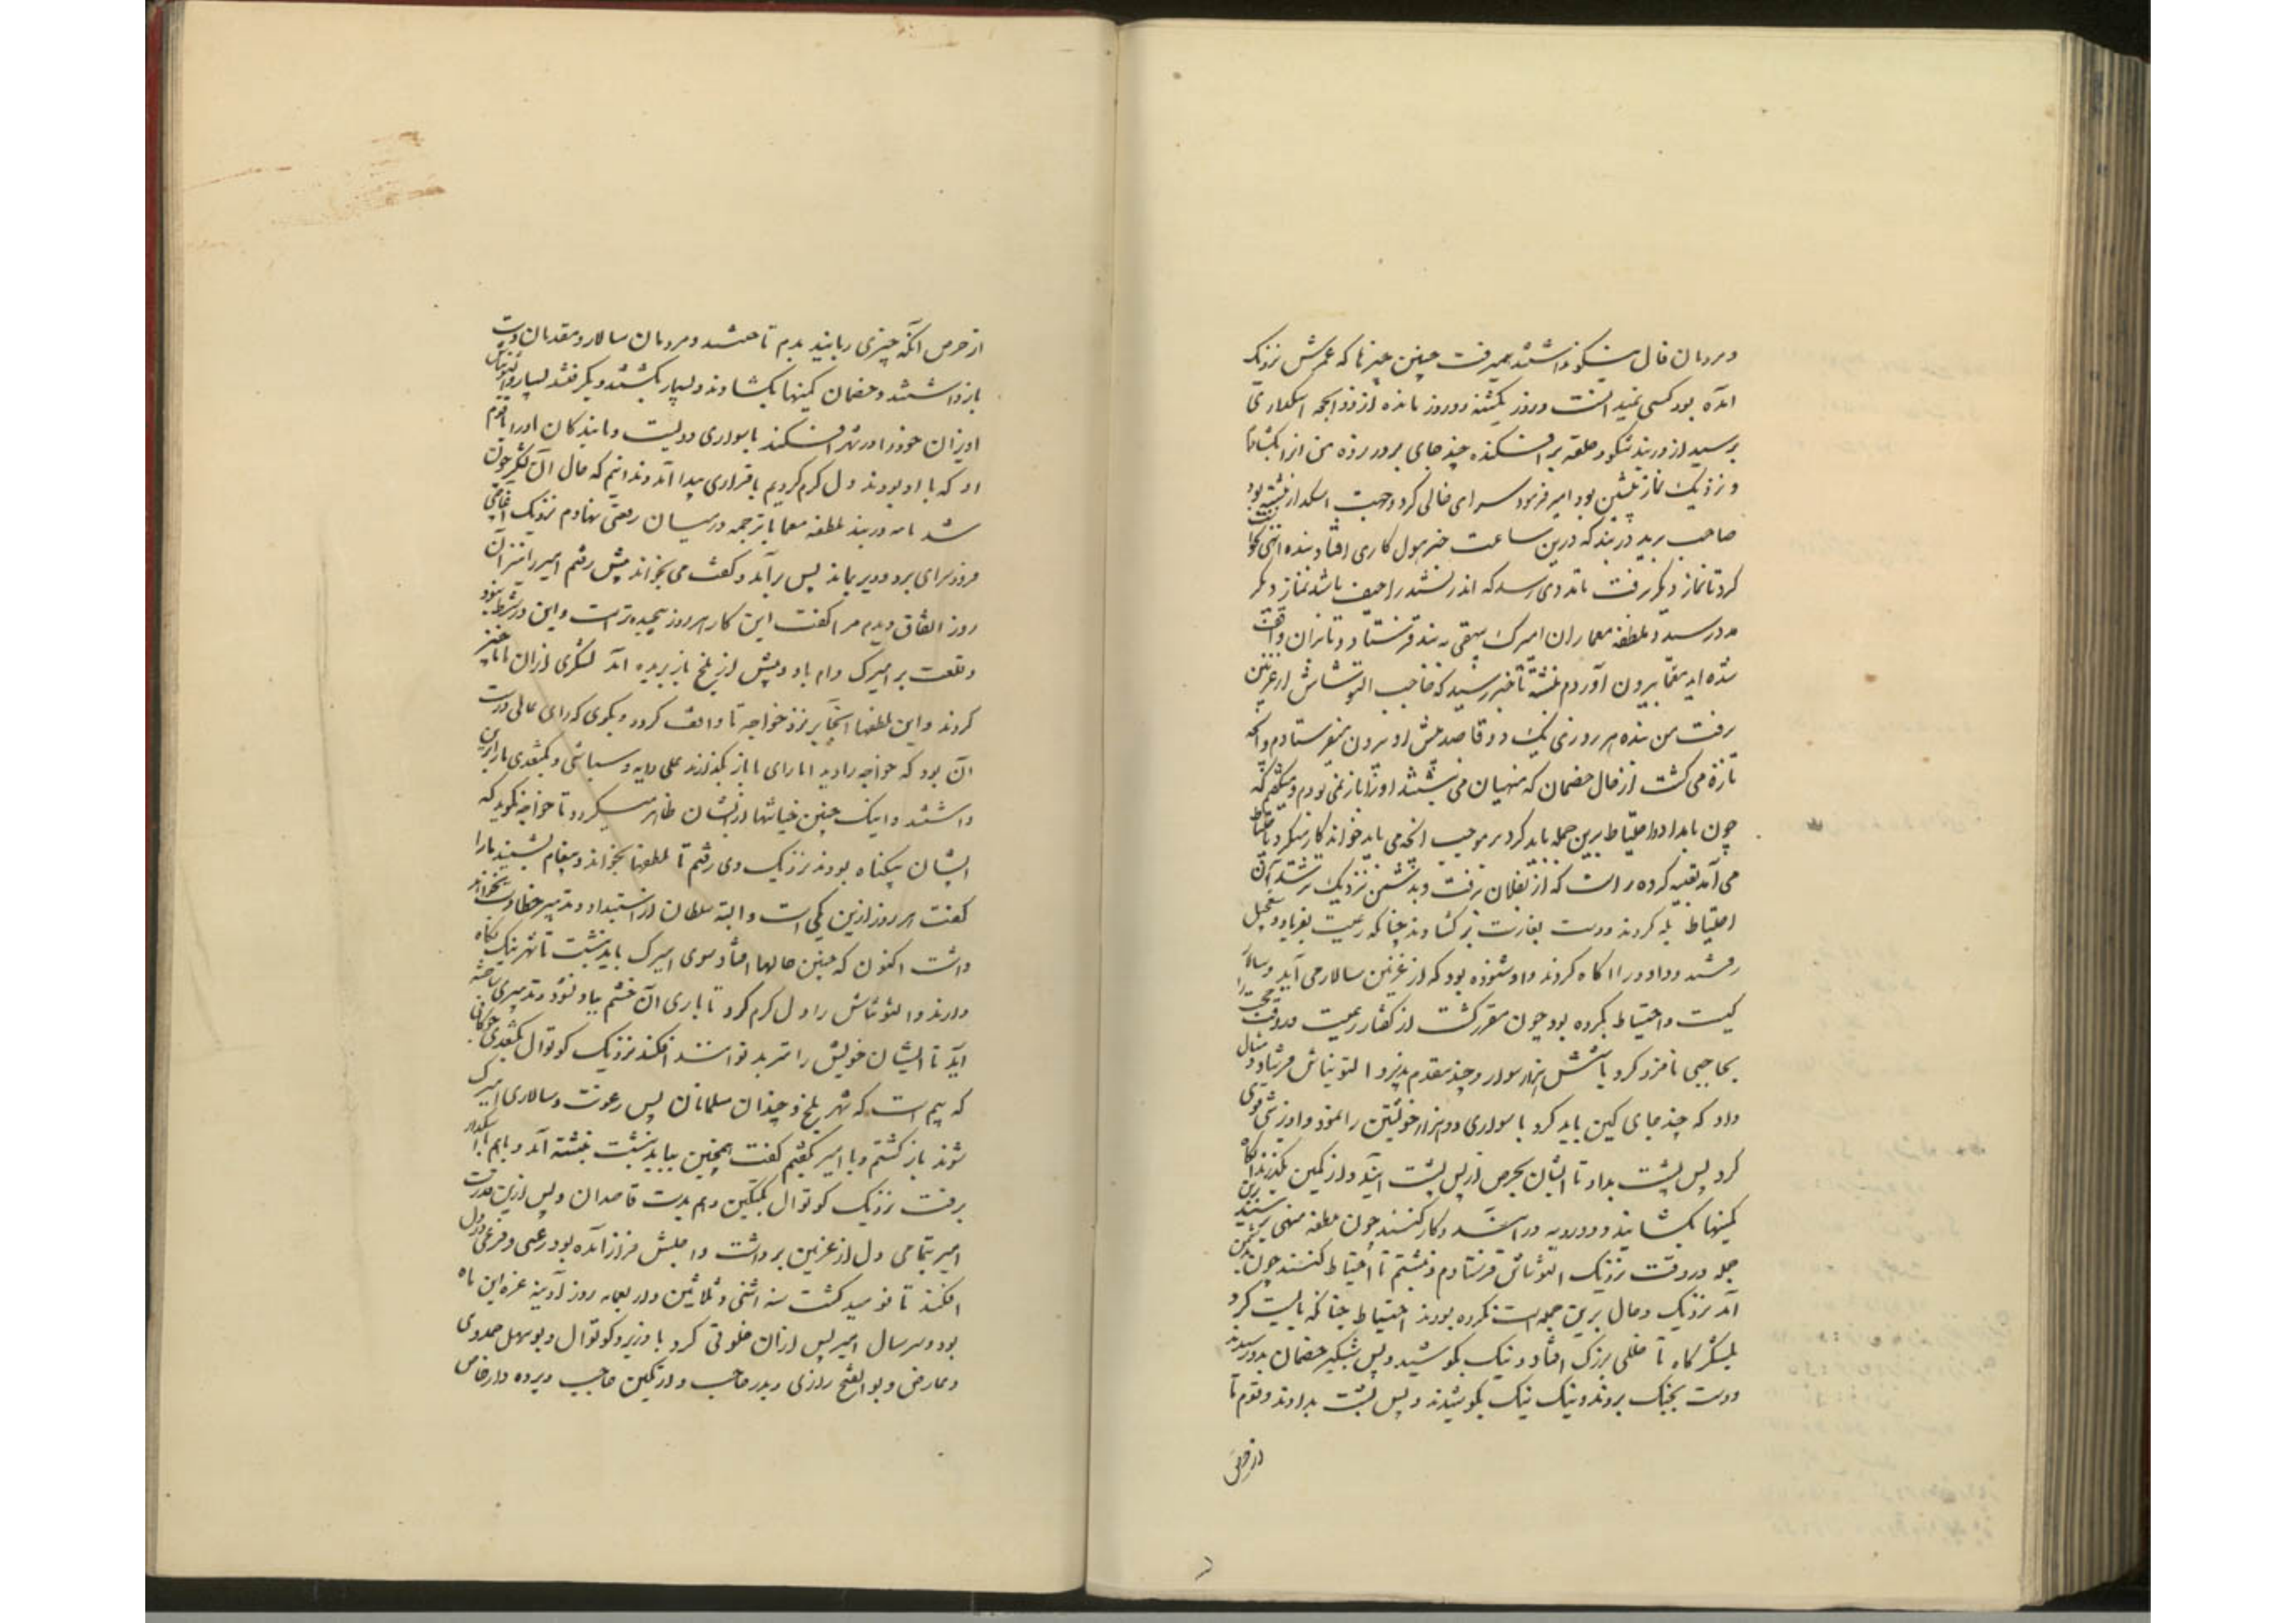 و مردمان فال نیکو نداشتند همیرفت چنین چیزها که عمرش نزدیک
آمده بود کسی نمیدانست و روز یکشنبه دو روز مانده از ذو الحجه اسکداری
برسید از دربند شکور حلقه بر افکنده چند جای بر در زده من آنرا بکشادم
و نزدیک نماز پیشین بود امیر فرود سرای خالی کرده جهت اسکدار نبشته بود
صاحب برید دربند که درین ساعت خبر هول کاری افتاد بنده انهی نخواست
کرد تا نماز دیگر رفت تا مددی رسد که اندر نبشته را حیف باشد نماز دیگر
در رسید و ملطفه معما از آن امیرک بیهقی
شده آید معما بیرون آوردم نبشته تا خبر رسید که حاجب التونتاش از غزنین
رفت من بنده هر روزی یک دو قاصد پیش او بیرون میفرستادم و آنچه
تازه می گشت از حال خصمان که منهیان می نبشتند او را باز می نمودم و میگفتم که
چون باید آمد و احتیاط برین جمله باید کرد بر موجب آنچه می باید خواند کار میکرد با احتیاط
می آمد تعبیه کرده راست که از بغلان برفت و بدشمن نزدیک تر شد آن
احتیاط یله کردند و دست بغارت بر کشادند چنانکه رعیت بفریاد و تعجیل
رفتند و داود را آگاه کردند و او شنوده بود که از غزنین سالار می آید و سالار
کیست و احتیاط بکرده بود چون مقرر گشت از گفتار رعیت در وقت
بحاجبی نامزد کرد با شش هزار سوار و چند مقدم پذیره التونتاش فرستاد و مثال
داد که چند جای کمین باید کرد با سواری دو هزار خویشتن را نمود و آویزشی قوی
کرد پس پشت بداد تا ایشان بحرص از پس پشت آیند و از کمین بگذرند آنگاه
کمینها بکشایند و دو رویه در آیند و کار کنند چون ملطفه منهی رسید برین
جمله در وقت نزدیک التونتاش فرستادم و نبشتم تا احتیاط کنند چون بدشمن
آمد نزدیک و حال برین جمله است نکرده بودند احتیاط چنانکه بایست کرد
بلشکرگاه تا خللی بزرگ افتاد و نیک بکوشید و پس شبگیر خصمان بدو رسیدند
و دست بجنگ بردند و نیک نیک بکوشیدند و پس پشت بدادند و قوم تا
از حرص
از حرص آنکه چیزی ربایند بدم تاختند و مردمان سالار و مقدمان دست
باز داشتند و خصمان کمینها بکشادند و بسیار بکشتند و بگرفتند بسیار و التونتاش
آویزان خود را در شهر افکند با سواری دویست و ما بندگان او را و قوم
او که با او بودند دل گرم کردیم تا قراری پیدا آمد و ندانیم که حال آن لشکر چون
شد نامه دربند ملطفه معما با ترجمه در میان رقعتی نهادم نزدیک آغاجی
فرود سرای برد و دیر بماند پس بر آمد و گفت می بخواند پیش رفتم امیر را نیز آن
روز اتفاق دیدم مرا گفت این کار هر روز پیچیده تر است و این در شرط نبود
و لعنت بر امیرک دام باد و پیش از بلخ باز بریده آمد لشکری از آن ما ناچیز
کردند و این ملطفها آنجا بر نزد خواجه تا واقف گردد و بگوی که رای عالی درست
آن بود که خواجه را دید اما رای ما باز نگذارند علی دایه و سباشی و بکتغدی ما را برین
داشتند و اینک چنین خیانتها از ایشان ظاهر میگردد تا خواجه نگوید که
ایشان بیگناه بودند نزدیک وی رفتم تا ملطفها بخواند و پیغام بشنید مرا
گفت هر روز ازین یکی است و البته سلطان از استبداد و تدبیر خطا دست نخواهد
داشت اکنون که چنین حالها افتاد سوی امیرک باید نبشت تا شهر نیک نگاه
دارند و التونتاش را دل گرم کرد تا باری آن خشم بباد نشود و تدبیری ساخته
آید تا ایشان خویش را بترمد توانند افکند نزدیک کوتوال بکتغدی چوگانی
که بیم است که شهر بلخ و چندان مسلمانان پس رعونت و سالاری امیرک
شوند باز گشتم و با امیر گفتم گفت همچنین بباید نبشت نبشته آمد و باهم اسکدار
برفت نزدیک کوتوال بکتگین و هم بدست قاصدان و پس ازین مدت
امیر بتمامی دل از غزنین برداشت و اجلش فراز آمده بود رعبی و فزعی در دل
افکند تا نومید گشت سنه اثنی و ثلاثین و اربعمایه روز آدینه غره این ماه
بود و سر سال امیر پس از آن خلوتی کرد با وزیر و کوتوال و بوسهل حمدوی
و عارض و بو الفتح رازی و بدر حاجب و ارتگین حاجب و پرده دار خاص